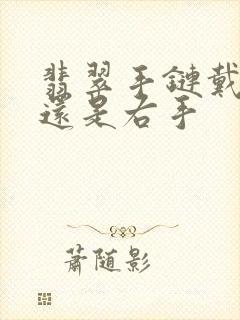 翡翠手鏈戴
還是右手
蕭随影